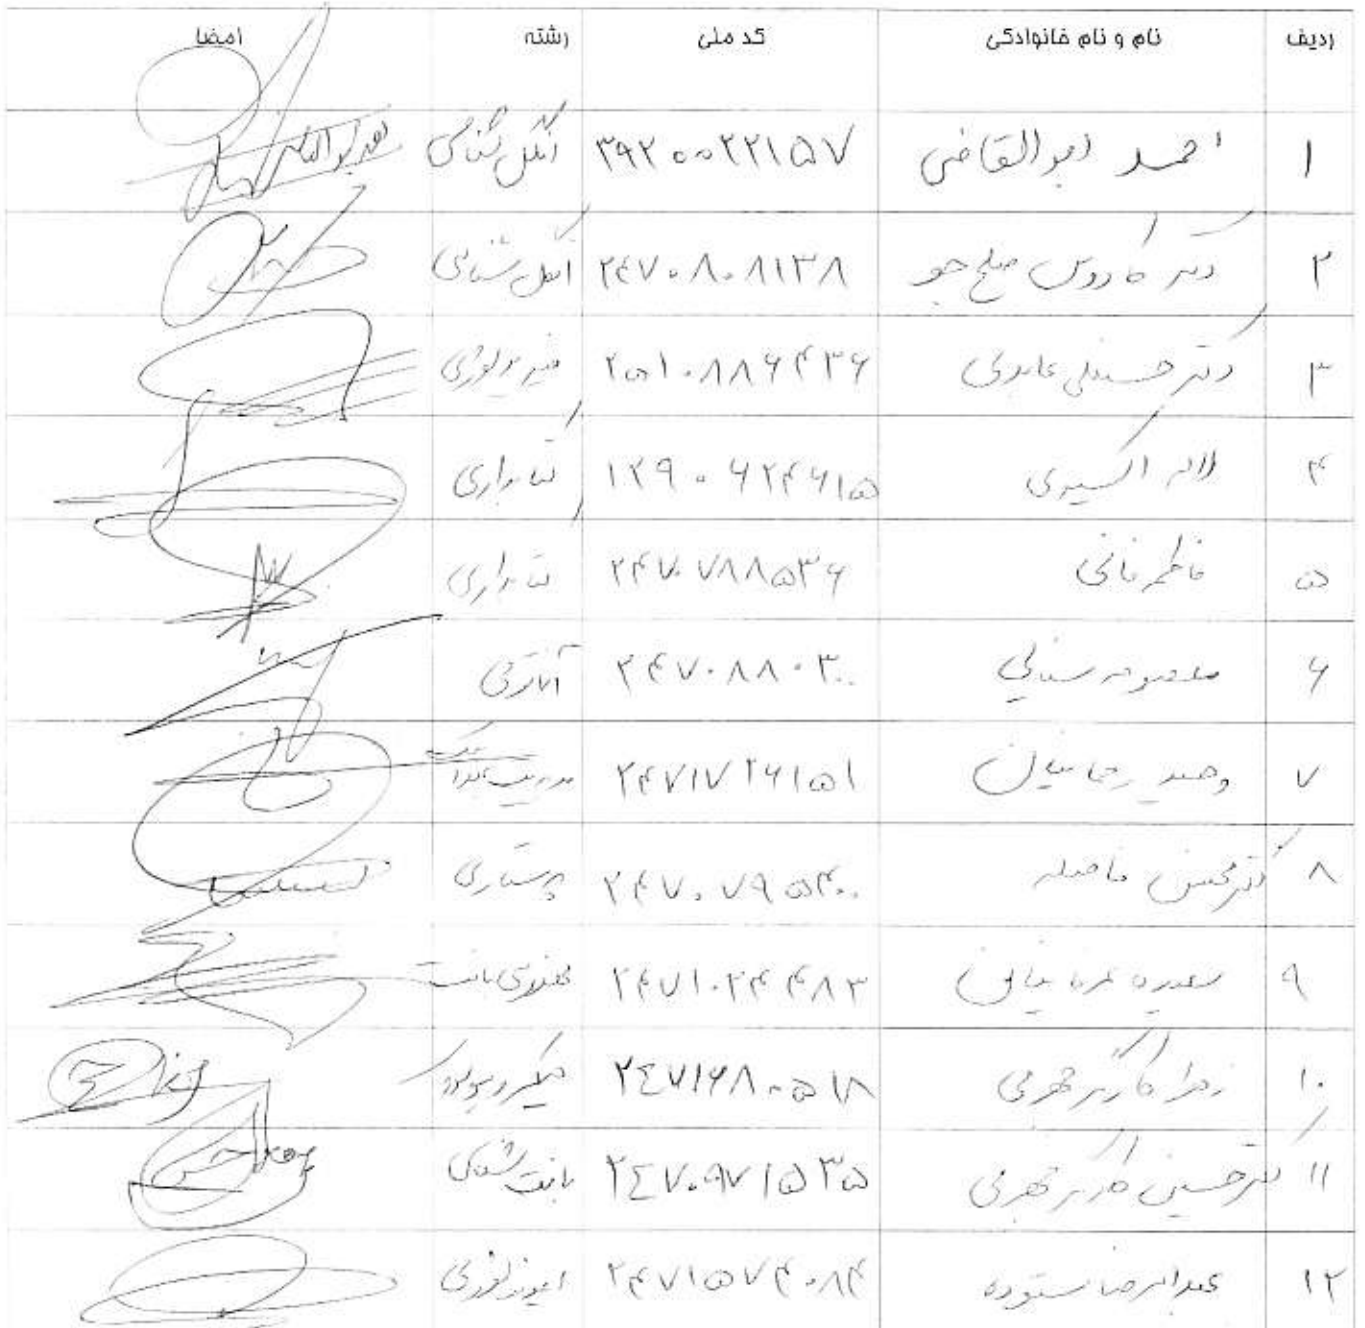 ردیف نام و نام خانوادگی کد ملی رشته امضا
۱ احمد ابوالقاضی ۳۹۲۰۰۲۲۱۵۷ انگل شناسی
۲ دکتر کاروس صلح جو ۲۴۷۰۸۰۸۱۳۸ انگل شناسی
۳ دکتر حسینعلی عابدی ۲۵۱۰۸۸۶۴۳۶ فیزیولوژی
۴ لاله اکسیری ۱۲۹۰۶۲۴۶۱۵ کتابداری
۵ فاطمه فانی ۲۴۷۰۷۸۸۵۳۶ کتابداری
۶ معصومه سنائی ۲۴۷۰۸۸۰۳۰۰
۷ وحید رجائیان ۲۴۷۱۷۲۶۱۵۱ مدیریت
۸ دکتر محسن فاضله ۲۴۷۰۷۹۵۴۰۰ پرستاری
۹ ۲۴۷۱۰۲۴۴۸۳ مهندسی بافت
۱۰ زهرا کارگر جهرمی ۲۴۷۱۶۸۰۵۷۸ میکروبیولوژی
۱۱ دکتر حسین کارگر جهرمی ۲۴۷۰۹۷۱۵۳۵ بافت شناسی
۱۲ عبدالرضا ستوده ۲۴۷۱۵۷۴۰۸۴ ایمونولوژی